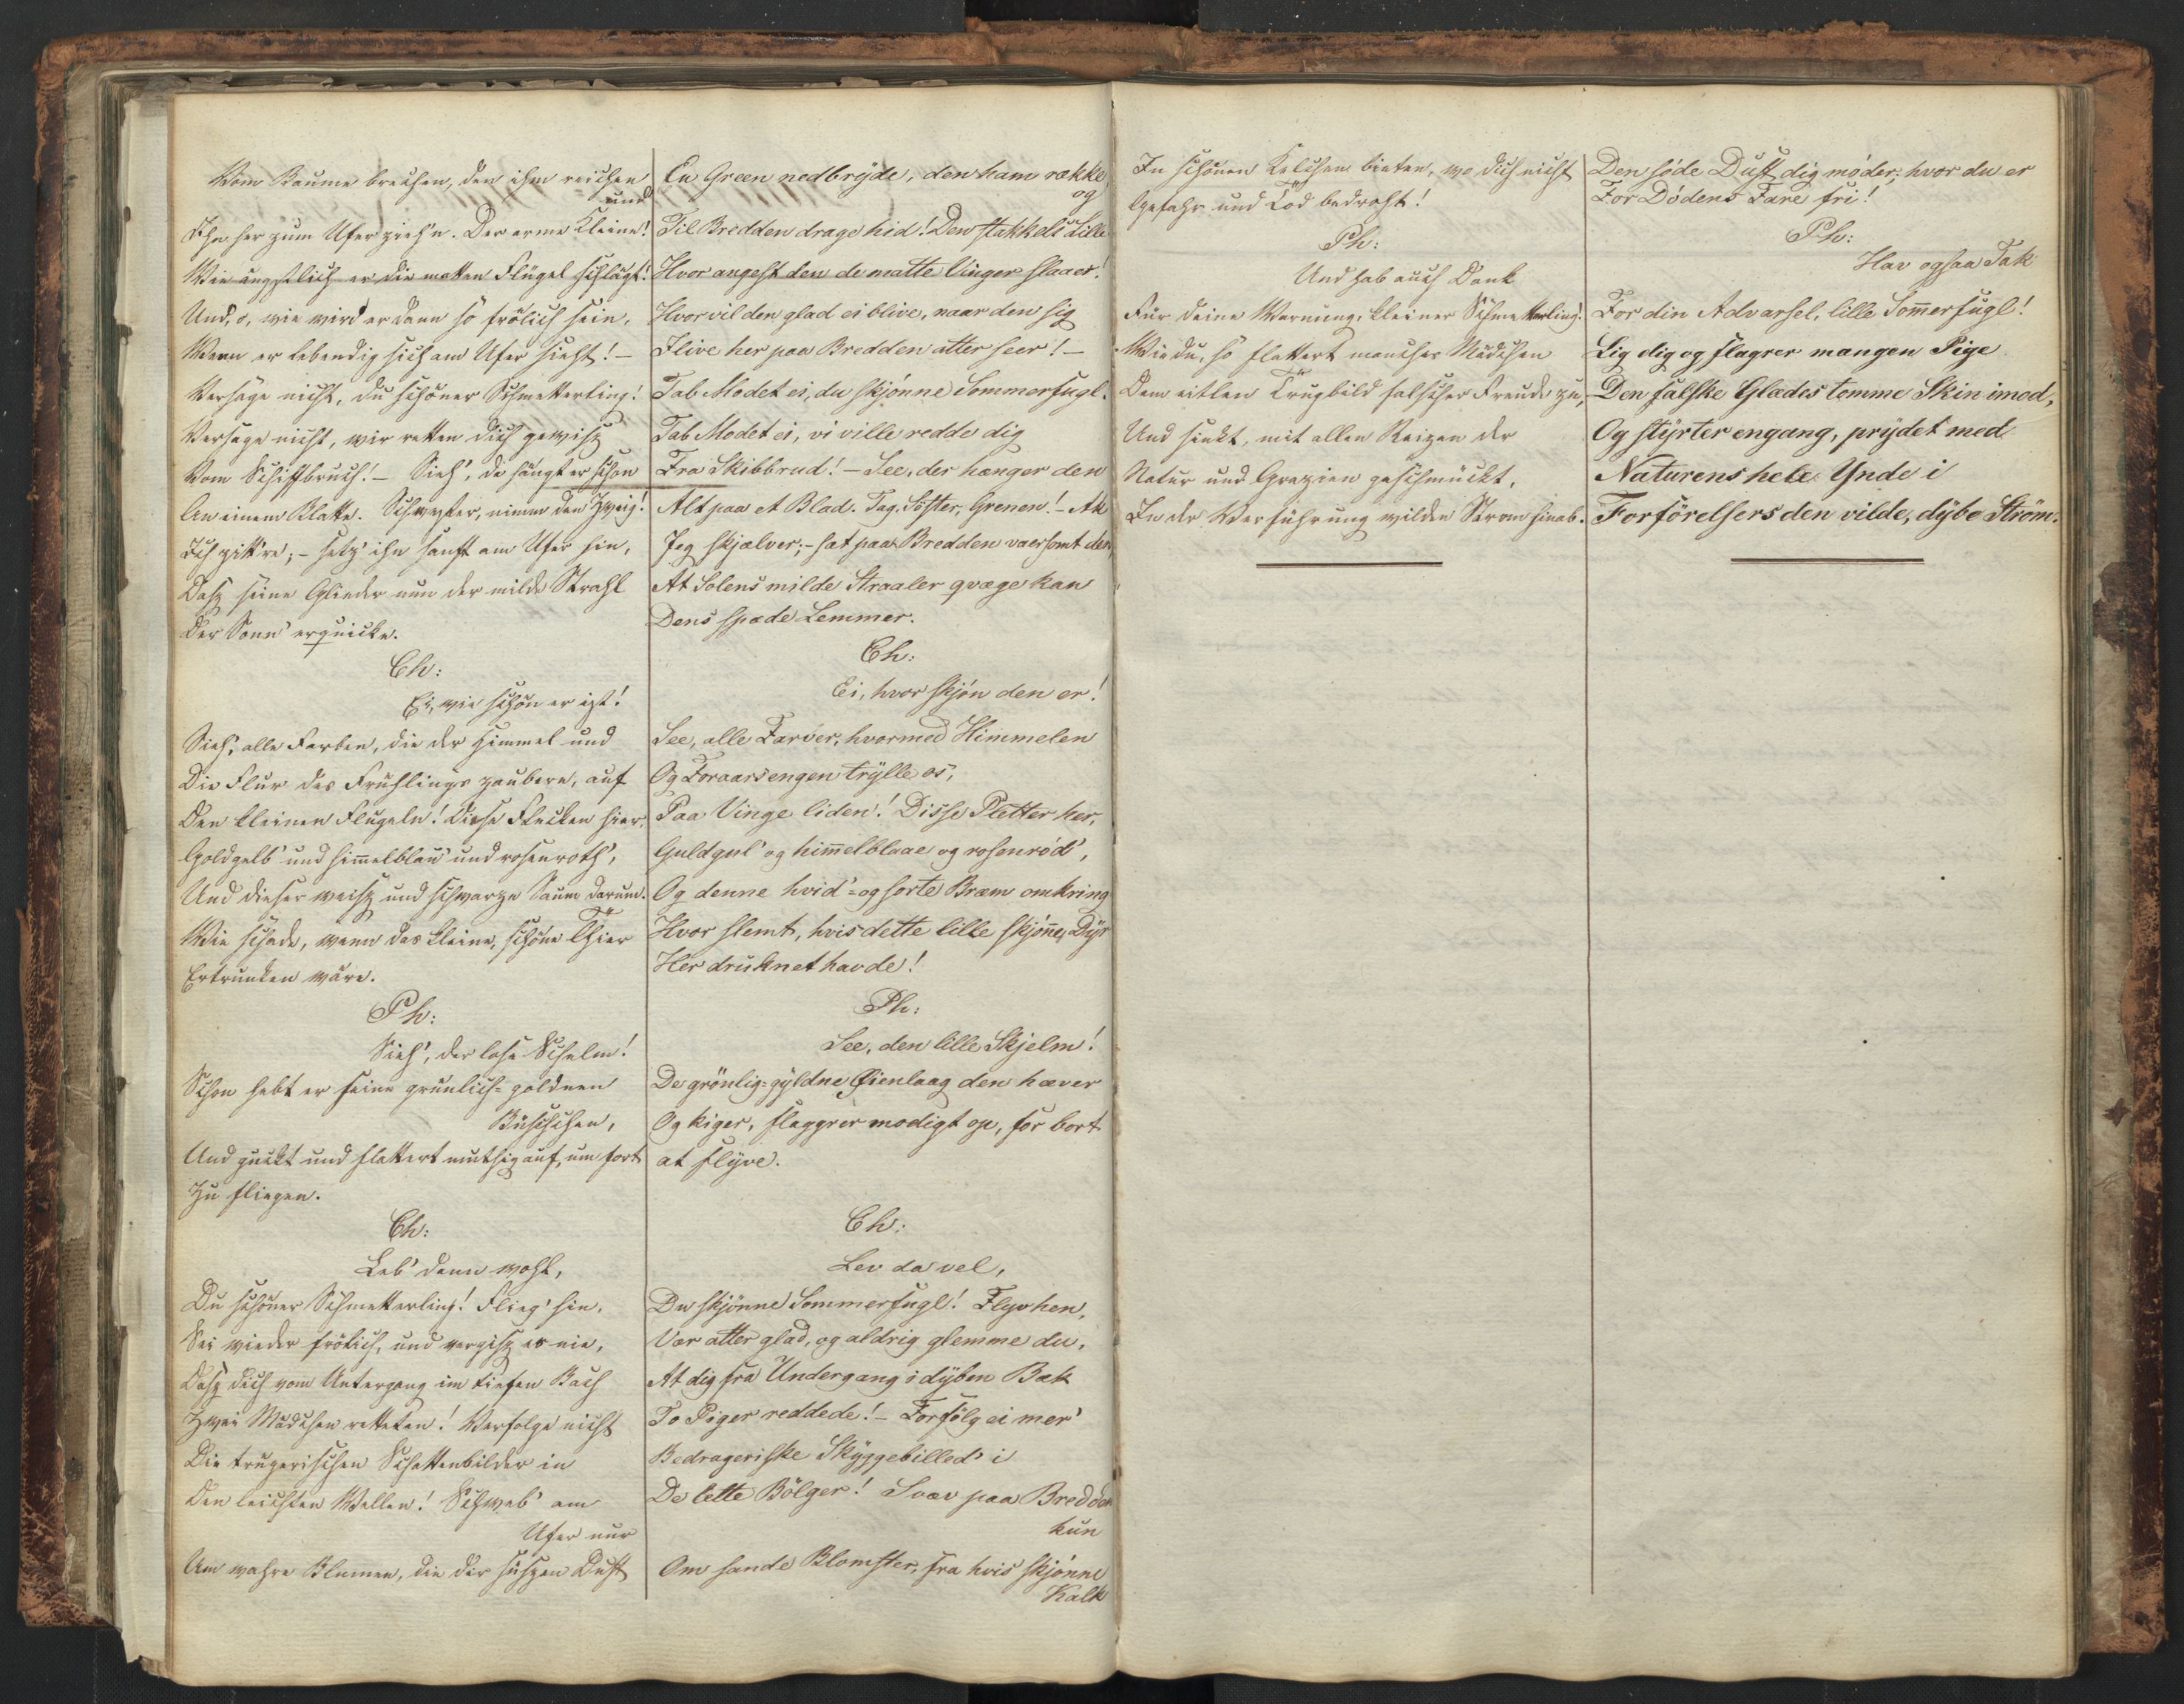 Vom Baume brechen, den ihm reichen
und
Ihn her zum Ufer zieh'n. Der arme Kleine!
Wie ängstlich er die matten Flügel schlägt!
Und, o, wie wird er dann so frölich sein,
Wenn er lebendig sich am Ufer sieht! –
Verzage nicht, du schöner Schmetterling!
Verzage nicht, wir retten dich gewisz
Vom Schiffbruch! – Sieh', da hängt er schon
An einem Blatte. Schwester, nimm den Zweig!
Ich zitt're; – setz' ihn sanft am Ufer hin,
Dasz seine Glieder nun der milde Strahl
Der Sonn' erquicke.
Ch:
Ei, wie schön er ist!
Sieh', alle Farben, die der Himmel und
Die Flur des Frühlings zaubern, auf
Den kleinen Flügeln! Diese Flecken hier,
Goldgelb' und himmelblau' und rosenroth',
Und dieser weisz und schwarze Saum darum.
Wie schade, wenn das kleine, schöne Thier
Ertrunken wäre.
Ph:
Sieh', der lose Schelm!
Schon hebt er seine grünlich-goldnen
Büschchen,
Und guckt und flattert muthig auf, um fort
Zu fliegen.
Ch:
Leb' denn wohl,
Du schöner Schmetterling! Flieg' hin,
Sei wieder frölich, und vergisz es nie,
Dasz dich vom Untergang im tiefen Bach
Zwei Mädchen retteten! Verfolge nicht
Die trügerischen Schattenbilder in
Den leichten Wellen! Schweb' am
Ufer nur
Um wahre Blumen, die dir süszen Duft
En Green nedbryde, den ham række
og
Til Bredden drage hid! Den stakkels Lille
Hvor angest den de matte Vinger slaaer!
Hvor vil den glad ei blive, naar den sig
Ilive her paa Bredden atter seer! –
Tab Modet ei, du skjønne Sommerfugl!
Tab Modet ei, vi ville redde dig
Fra Skibbrud! – See, der hænger den
Alt paa et Blad. Tag, Söster, Grenen! – Ak
Jeg skjælver; – sæt paa Bredden vaersomt den,
At Solens milde Straaler qvæge kan
Dens spæde Lemmer.
Ch:
Ei, hvor skjøn den er!
See, alle Farver, hvormed Himmelen
Og Foraarsengen trylle os,
Paa Vinge liden! Disse Pletter her,
Guldgul' og him̅elblaae og rosenrød',
Og denne hvid'- og sorte Bræm omkring
Hvor slemt, hvis dette lille skjøn̅e Dyr
Her druknet havde!
Ph:
See, den lille Skjelm!
De grönlig-gyldne Øienlaag den hæver
Og kiger, flaggrer modigt op, for bort
at flyve.
Ch:
Lev da vel,
Du skjønne Sommerfugl! Flyv hen,
Vær atter glad, og aldrig glemme du,
At dig fra Undergang i dyben Bæk
To Piger reddede! – Forfölg ei mer'
Bedrageriske Skyggebilled' i
De lette Bölger! Svæv paa Bredden
kun
Om sande Blomster, fra hvis skjønne
Kalk
In schönen Kelchen bieten, wo dich nicht
Gefahr und Tod bedroht!
Ph:
Und hab auch Dank
Für deine Warnung, kleiner Schmetterling!
Wie du, so flattert manches Mädchen
Dem eitlen Trugbild falscher Freude zu,
Und sinkt, mit allen Reizen der
Natur und Grazien geschmückt,
In der Verführung wilden Strom hinab.
Den søde Duft dig møder; hvor du er
For Dødens Fare fri!
Ph:
Hav ogsaa Tak
For din Advarsel, lille Som̅erfugl!
Lig dig og flagrer mangen Pige
Den falske Glædes tomme Skin imod,
Og styrter engang, prydet med
Naturens hele Ynde i
Forförelsers den vilde, dybe Ström.